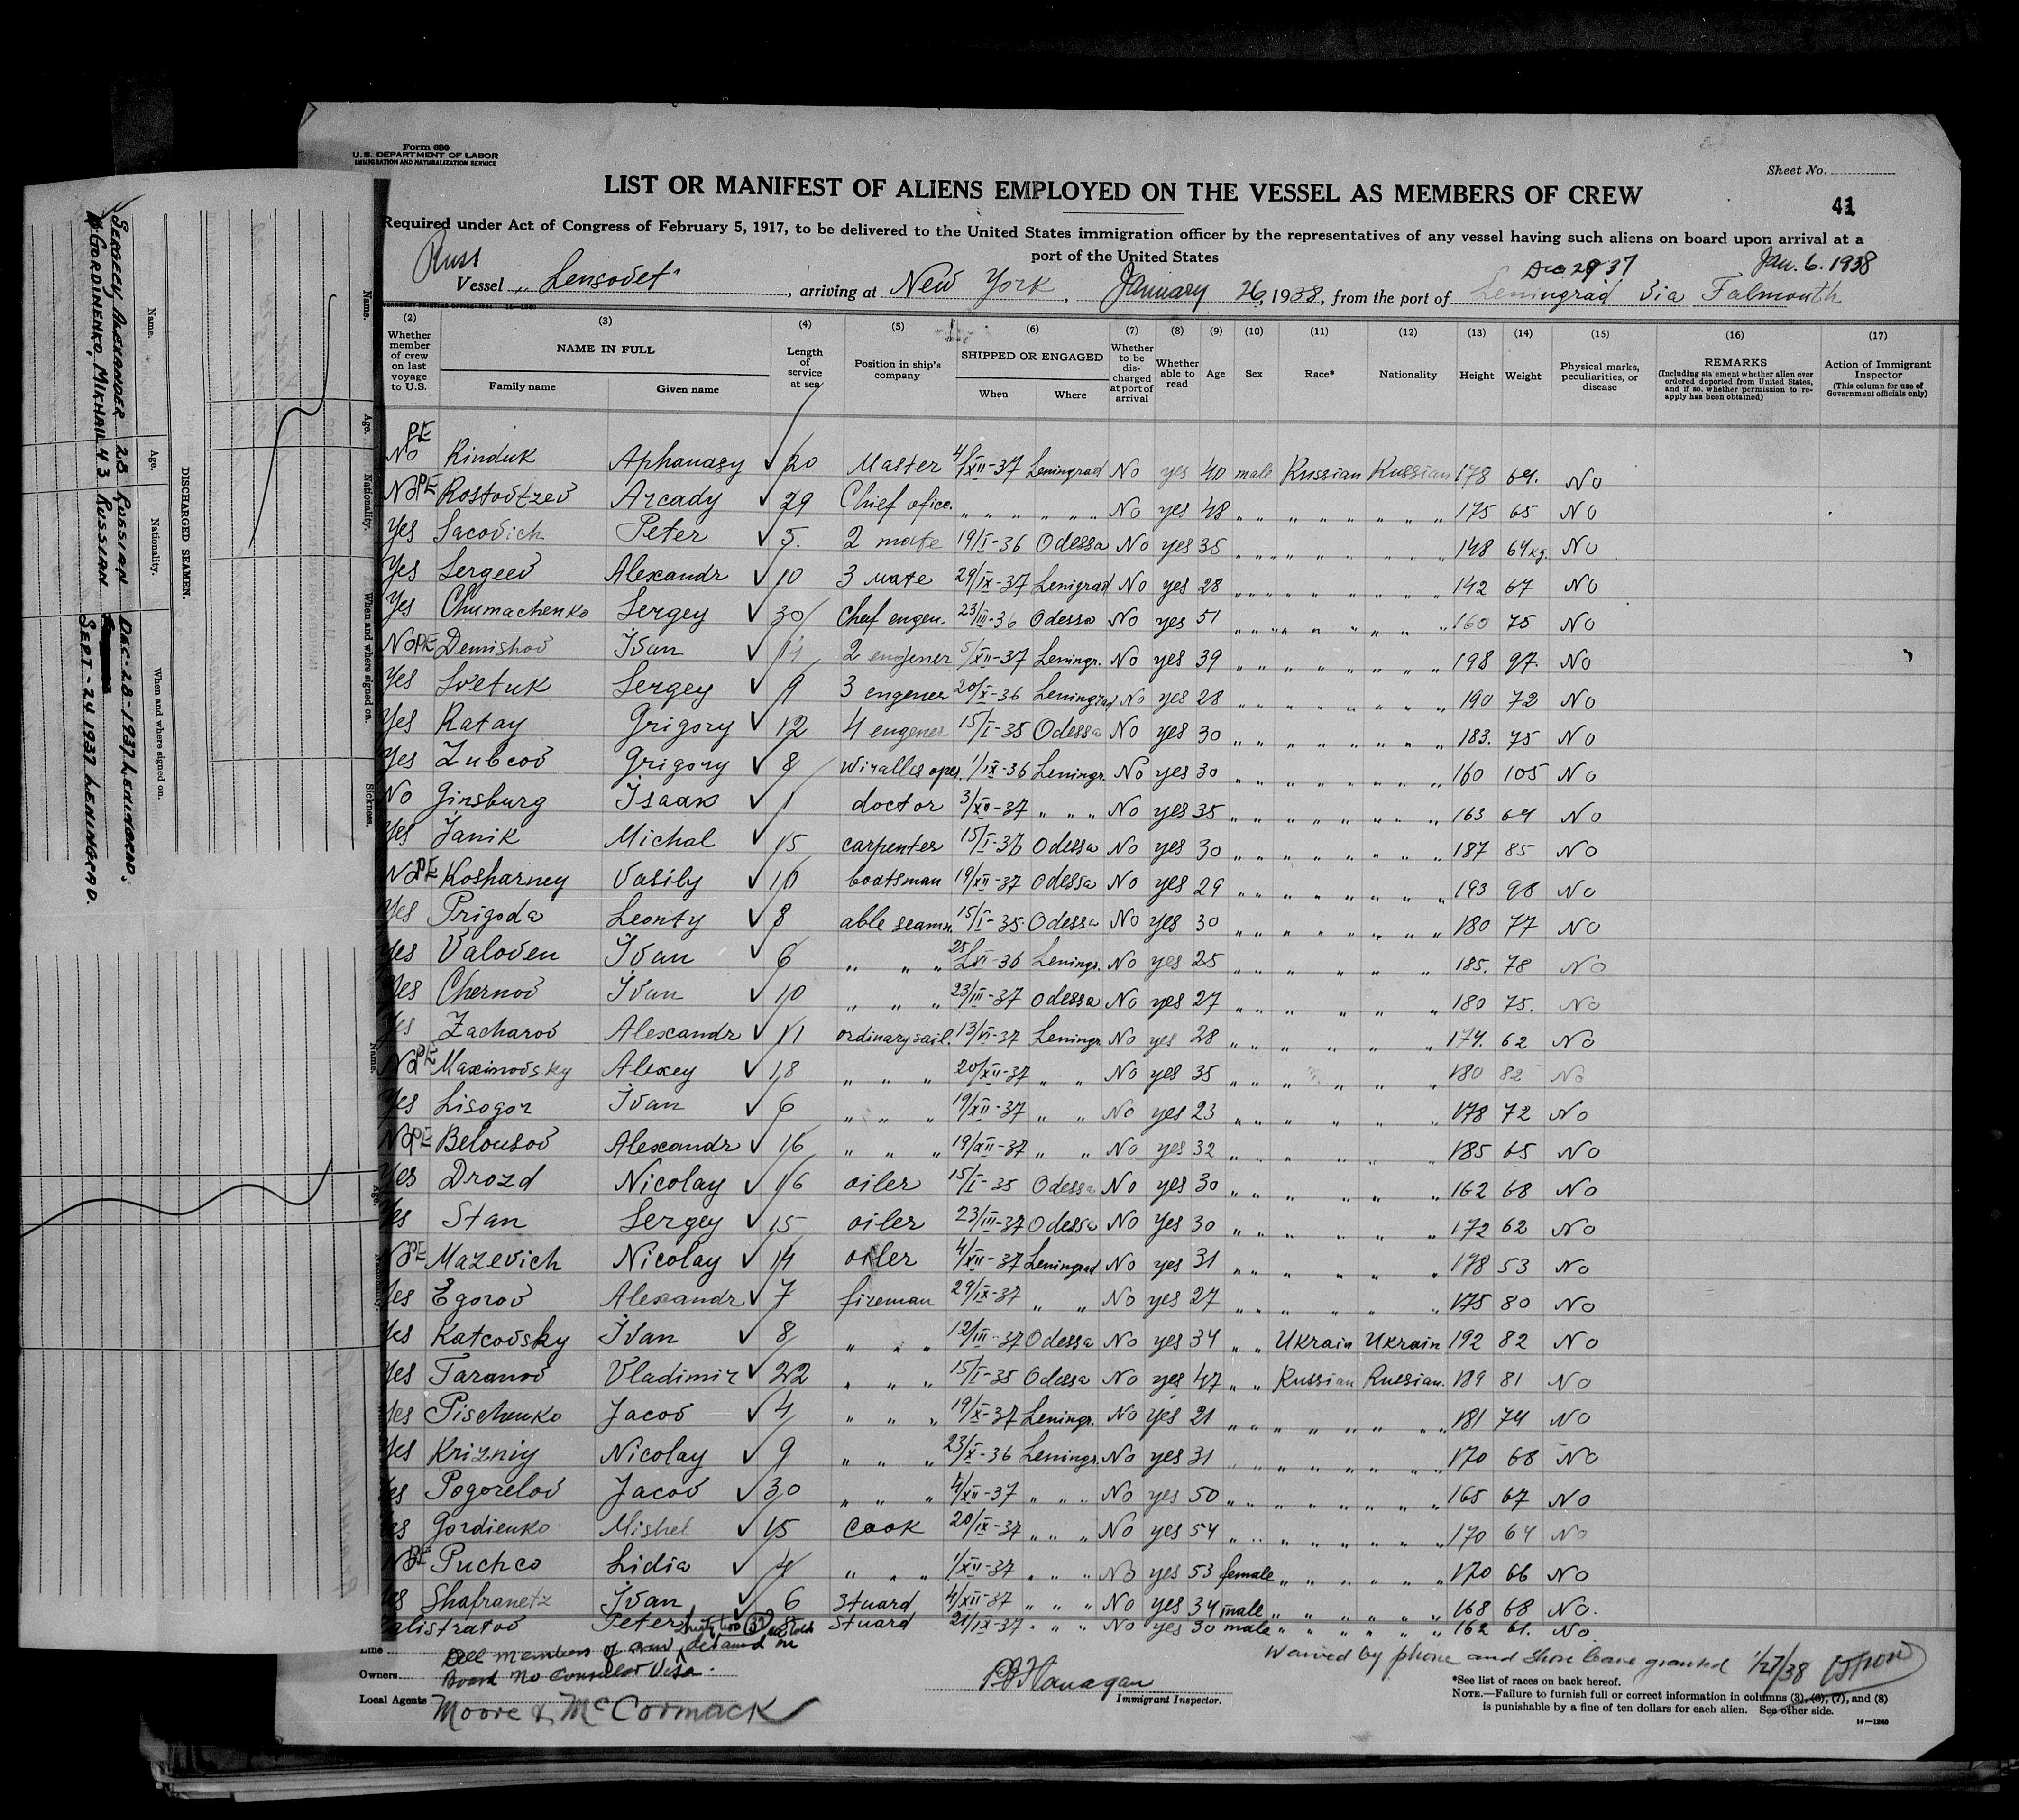 Form 680
U. S. DEPARTMENT OF LABOR
IMMIGRATION AND NATURALIZATION SERVICE
Sheet No.
LIST OR MANIFEST OF ALIENS EMPLOYED ON THE VESSEL AS MEMBERS OF CREW
41
Required under Act of Congress of February 5, 1917, to be delivered to the United States immigration officer by the representatives of any vessel having such aliens on board upon arrival at a
port of the United States
Russ
Dec 29 37 Jan. 6. 1938
Vessel „Lensovet", arriving at New York, January 26, 1938, from the port of Leningrad via Falmouth
(2) (3) (4) (5) (6) (7) (8) (9) (10) (11) (12) (13) (14) (15) (16) (17)
Whether member of crew on last voyage to U.S.
NAME IN FULL
Family name Given name
Length of service at sea
Position in ship's company
SHIPPED OR ENGAGED
When Where
Whether to be discharged at port of arrival
Whether able to read
Age Sex Race* Nationality Height Weight
Physical marks, peculiarities, or disease
REMARKS
(Including statement whether alien ever ordered deported from United States, and if so, whether permission to reapply has been obtained)
Action of Immigrant Inspector
(This column for use of Government officials only)
PE
No Rinduk Aphanasy √ 20 Master 4/XII-37 Leningrad No yes 40 male Russian Russian 178 64. No
No PE Rostovtzev Arcady √ 29 Chief ofice. „ „ „ „ „ „ No yes 48 „ „ „ „ „ „ „ 175 65 No
Yes Sacovich Peter √ 5. 2 mate 19/I-36 Odessa No yes 35 „ „ „ „ „ „ „ 148 64 kg. No
Yes Sergeev Alexandr √ 10 3 mate 29/IX-37 Lenigrad No yes 28 „ „ „ „ „ „ „ 142 67 No
Yes Chumachenko Sergey √ 30 Chef engen. 23/III-36 Odessa No yes 51 „ „ „ „ „ „ „ 160 75 No
No PE Demishov Ivan √ 11 2 engener 5/XII-37 Leningr. No yes 39 „ „ „ „ „ „ „ 198 97. No
Yes Svetuk Sergey √ 9 3 engener 20/X-36 Leningrad No yes 28 „ „ „ „ „ „ „ 190 72 No
Yes Ratay Grigory √ 12 4 engener 15/I-35 Odessa No yes 30 „ „ „ „ „ „ „ 183. 75 No
Yes Zubcov Grigory √ 8 Wiralles oper. 1/IX-36 Leningr. No yes 30 „ „ „ „ „ „ „ 160 105 No
No Ginsburg Isaak √ 1 doctor 3/XII-37 „ „ „ No yes 35 „ „ „ „ „ „ „ 163 64 No
Yes Janik Michal √ 15 carpenter 15/I-36 Odessa No yes 30 „ „ „ „ „ „ „ 187 85 No
No PE Kosharney Vasily √ 10 boatsman 19/XII-37 Odessa No yes 29 „ „ „ „ „ „ „ 193 98 No
Yes Prigoda Leonty √ 8 able seamn. 15/I-35 Odessa No yes 30 „ „ „ „ „ „ „ 180 77 No
Yes Valoven Ivan √ 6 „ „ „ 25/VI-36 Leningr. No yes 25 „ „ „ „ „ „ 185. 78 No
Yes Chernov Ivan √ 10 „ „ „ 23/III-37 Odessa No yes 27 „ „ „ „ „ „ 180 75. No
Yes Zacharov Alexandr √ 11 ordinary sail. 13/VI-37 Leningr. No yes 28 „ „ „ „ „ „ 174. 62 No
No PE Maximovsky Alexey √ 18 „ „ „ 20/XII-37 „ „ No yes 35 „ „ „ „ „ 180 82 No
Yes Lisogor Ivan √ 6 „ „ „ 19/XII-37 „ „ No yes 23 „ „ „ „ „ „ 178 72 No
No PE Belousov Alexandr √ 16 „ „ „ 19/XII-37 „ „ No yes 32 „ „ „ „ „ „ 185 65 No
Yes Drozd Nicolay √ 16 oiler 15/I-35 Odessa No yes 30 „ „ „ „ „ „ 162 68 No
Yes Stan Sergey √ 15 oiler 23/III-37 Odessa No yes 30 „ „ „ „ „ „ 172 62 No
No PE Mazevich Nicolay √ 14 oiler 4/XII-37 Leningrad No yes 31 „ „ „ „ „ „ 178 53 No
Yes Egorov Alexandr √ 7 fireman 29/IX-37 „ „ No yes 27 „ „ „ „ „ „ 175 80 No
Yes Katcovsky Ivan √ 8 „ „ „ 12/III-37 Odessa No yes 34 „ „ Ukrain Ukrain 192 82 No
Yes Taranov Vladimir √ 22 „ „ „ 15/I-35 Odessa No yes 47 „ „ Russian Russian. 189 81 No
Yes Pischenko Jacov √ 4 „ „ „ 19/X-37 Leningr. No yes 21 „ „ „ „ „ „ „ 181 74 No
Yes Krizniy Nicolay √ 9 „ „ „ 23/X-36 Leningr. No yes 31 „ „ „ „ „ „ „ 170 68 No
Yes Pogorelov Jacov √ 30 „ „ „ 4/XII-37 „ „ „ No yes 50 „ „ „ „ „ „ „ 165 67 No
Yes Gordienko Mishel √ 15 cook 20/IX-37 „ „ „ No yes 54 „ „ „ „ „ „ „ 170 64 No
No PE Puchco Lidia √ 4 „ „ „ 1/XII-37 „ „ „ No yes 53 female „ „ „ „ „ „ 170 66 No
Yes Shafranetz Ivan √ 6 Stuard 4/XII-37 „ „ „ No yes 34 male „ „ „ „ „ „ 168 68 No.
alistratov Peter 8 Stuard 21/IX-37 „ „ „ No yes 30 male „ „ „ „ „ „ 162 61. No
Line
All members of crew detained on
Board no Consular Visa.
Owners
Local Agents Moore & McCormack
Immigrant Inspector.
Waived by phone and shore leave granted 1/27/38
*See list of races on back hereof.
NOTE.—Failure to furnish full or correct information in columns (3), (6), (7), and (8)
is punishable by a fine of ten dollars for each alien. See other side.
14—1240
DISCHARGED SEAMEN.
Name. Age. Nationality. When and where signed on.
SERGEEV ALEXANDER 28 RUSSIAN DEC-28-1937 LENINGRAD.
GORDINENKO, MIKHAIL 43 RUSSIAN SEPT-24 1937 LENINGRAD.
Name. Age. Nationality. When and where signed on. Sickness.
Name. Age. Nationality.